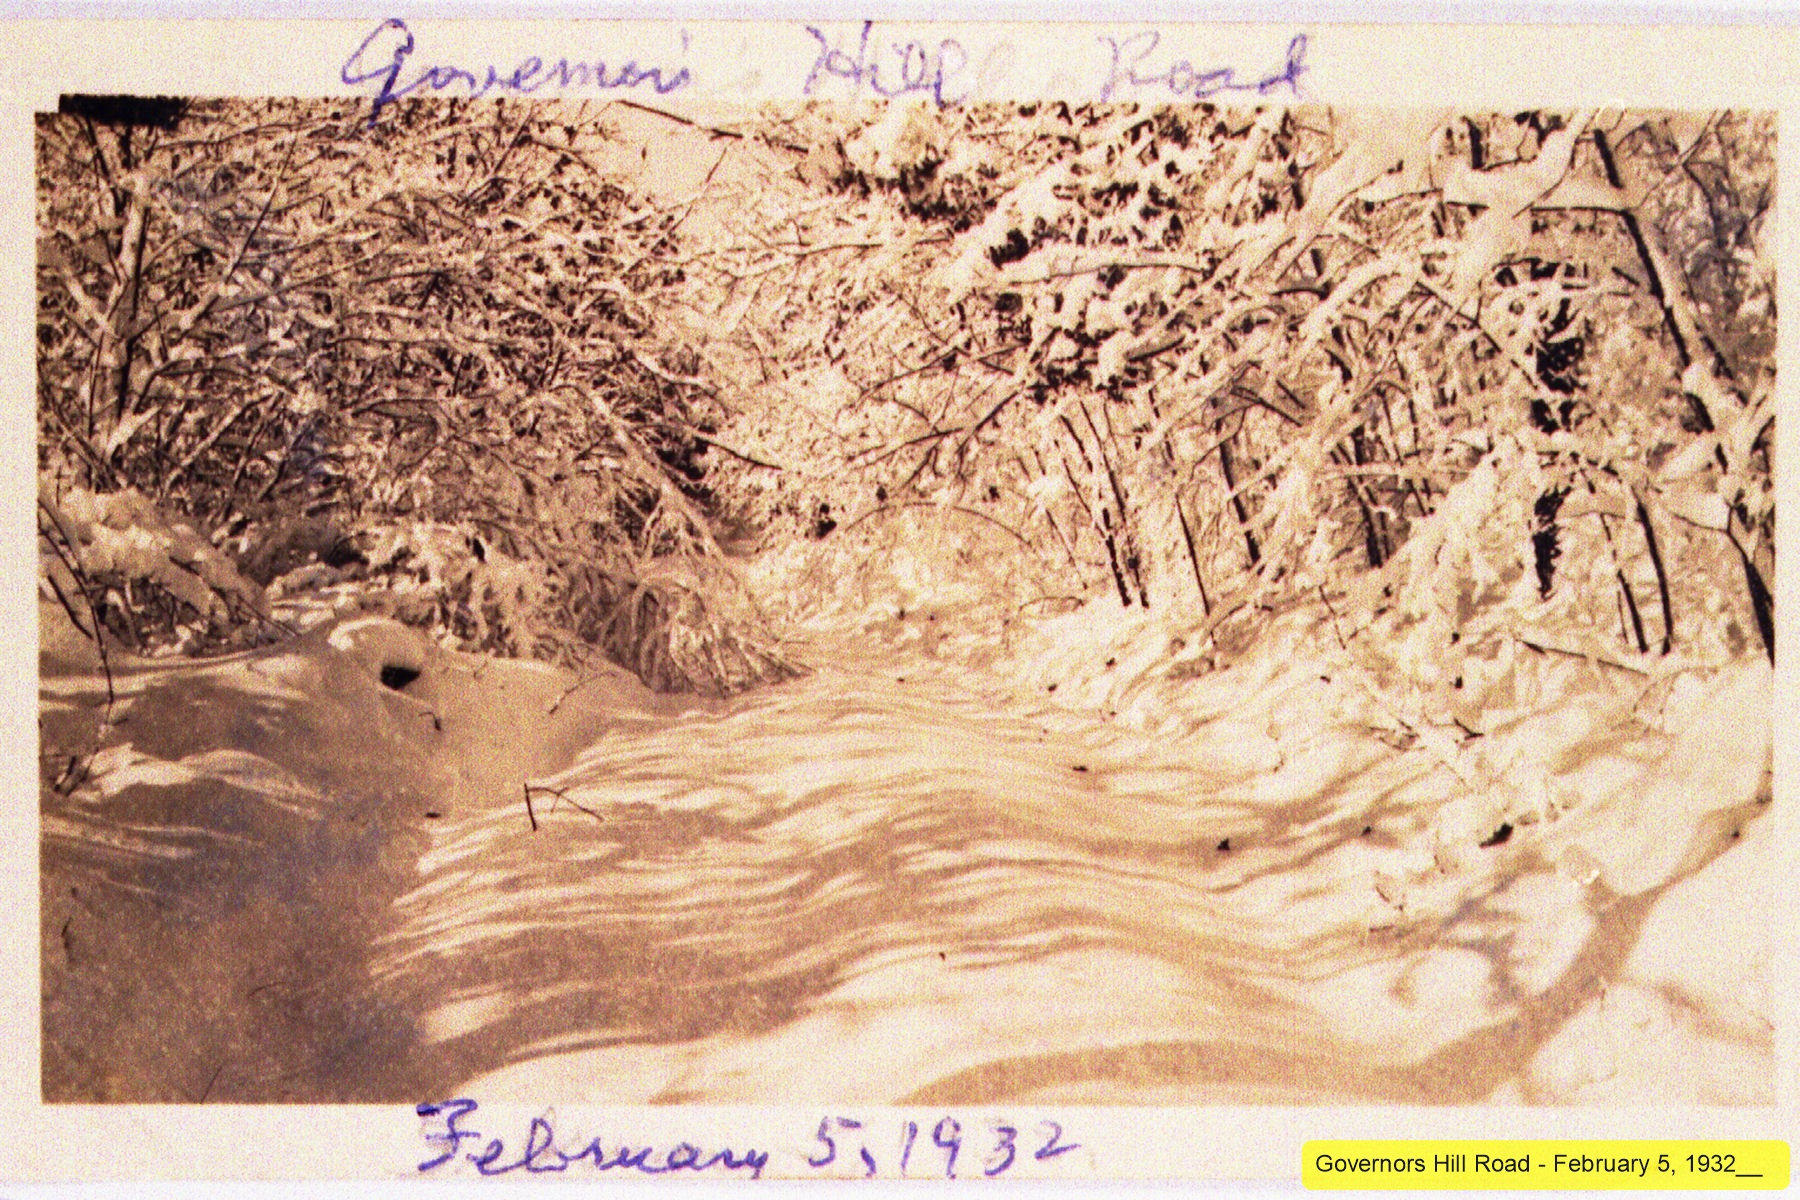 Governor's Hill Road
February 5, 1932
Governors Hill Road - February 5, 1932__